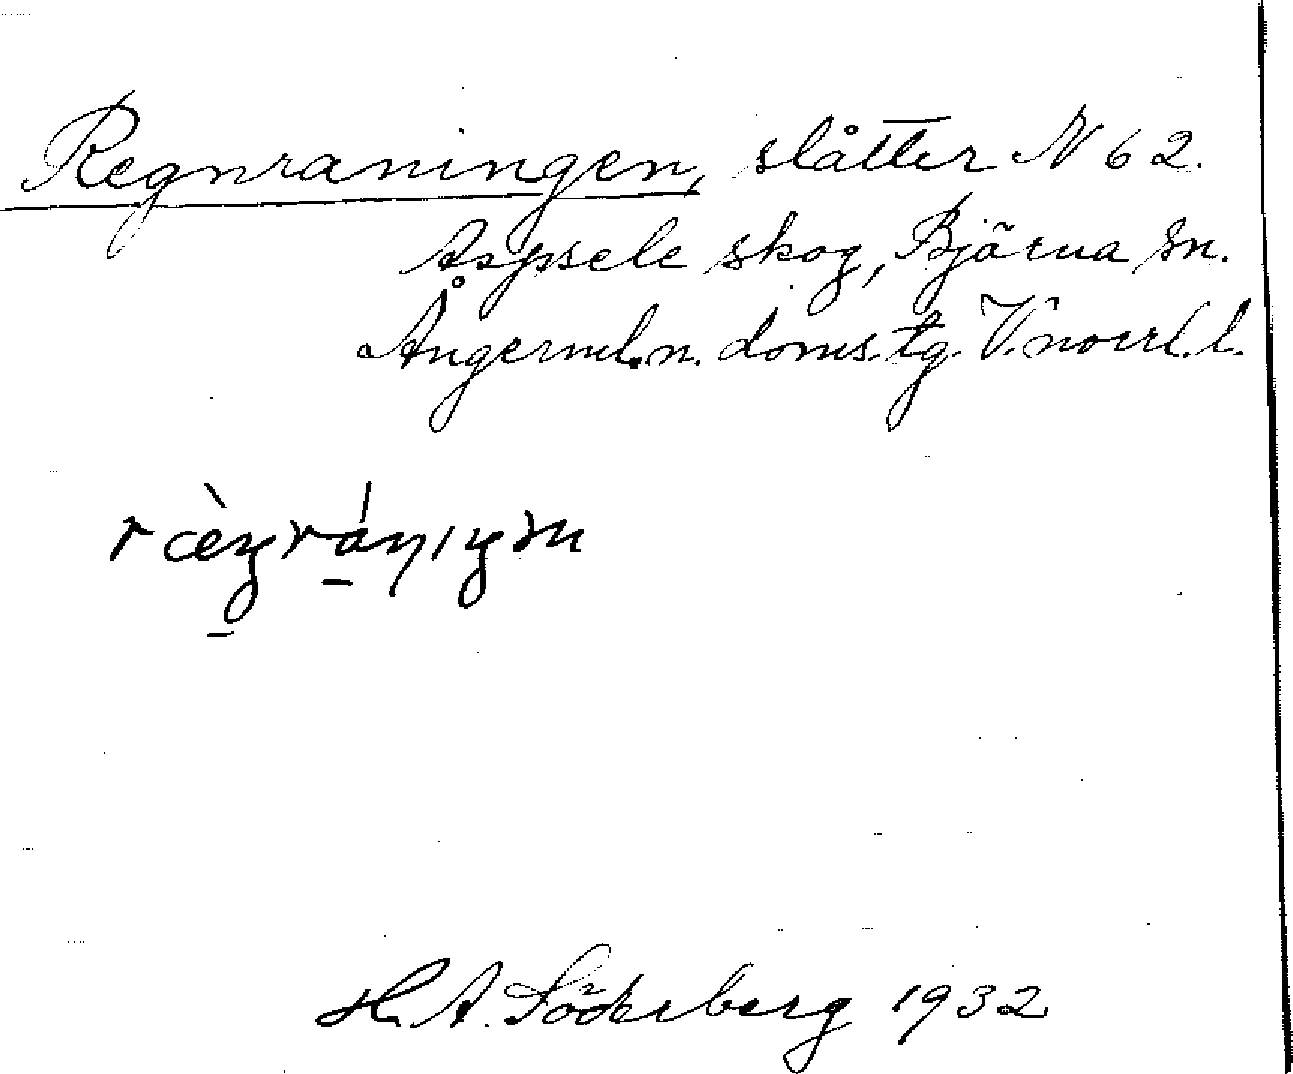 Regnraningen, slåtter N 62.
Aspsele skog, Björna sn.
Ångerml.n. doms.tg. V.norrl.l.
H. A. Söderberg 1932